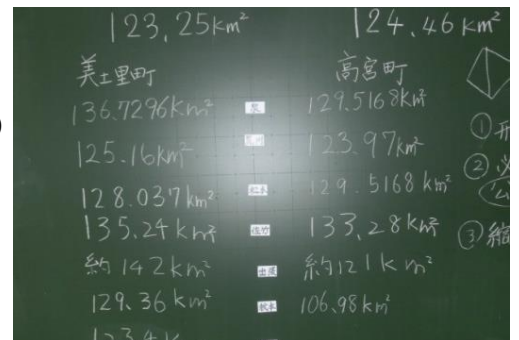 123.25km² 124.46km²
美土里町 高宮町
136.7296km² 泉 129.5168km²
①形
125.16km² 123.97km²
②必
128.037km² 松本 129.5168km²
135.24km² 佐竹 133.28km²
③縮
約142km² 出須 約121km²
129.36km² 106.98km²